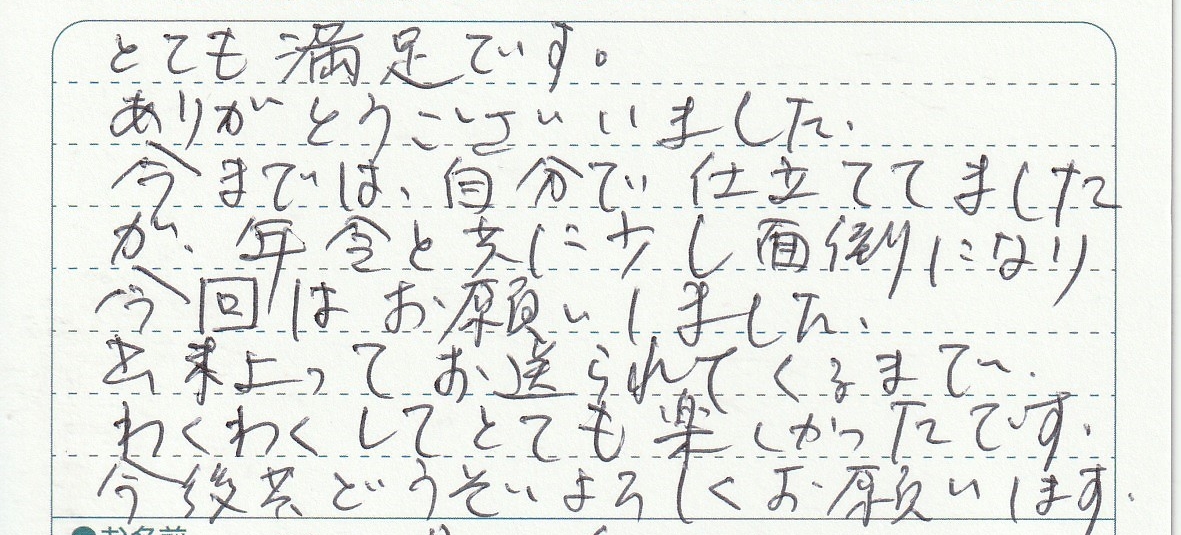 とても満足です。
ありがとうございいました.
今までは、自分で仕立ててました
が、年令と共に少し面倒になり
今回はお願いしました.
出来上ってお送られてくるまで.
わくわくしてとても楽しかったです.
今後共どうぞいよろしくお願いします.
●お名前